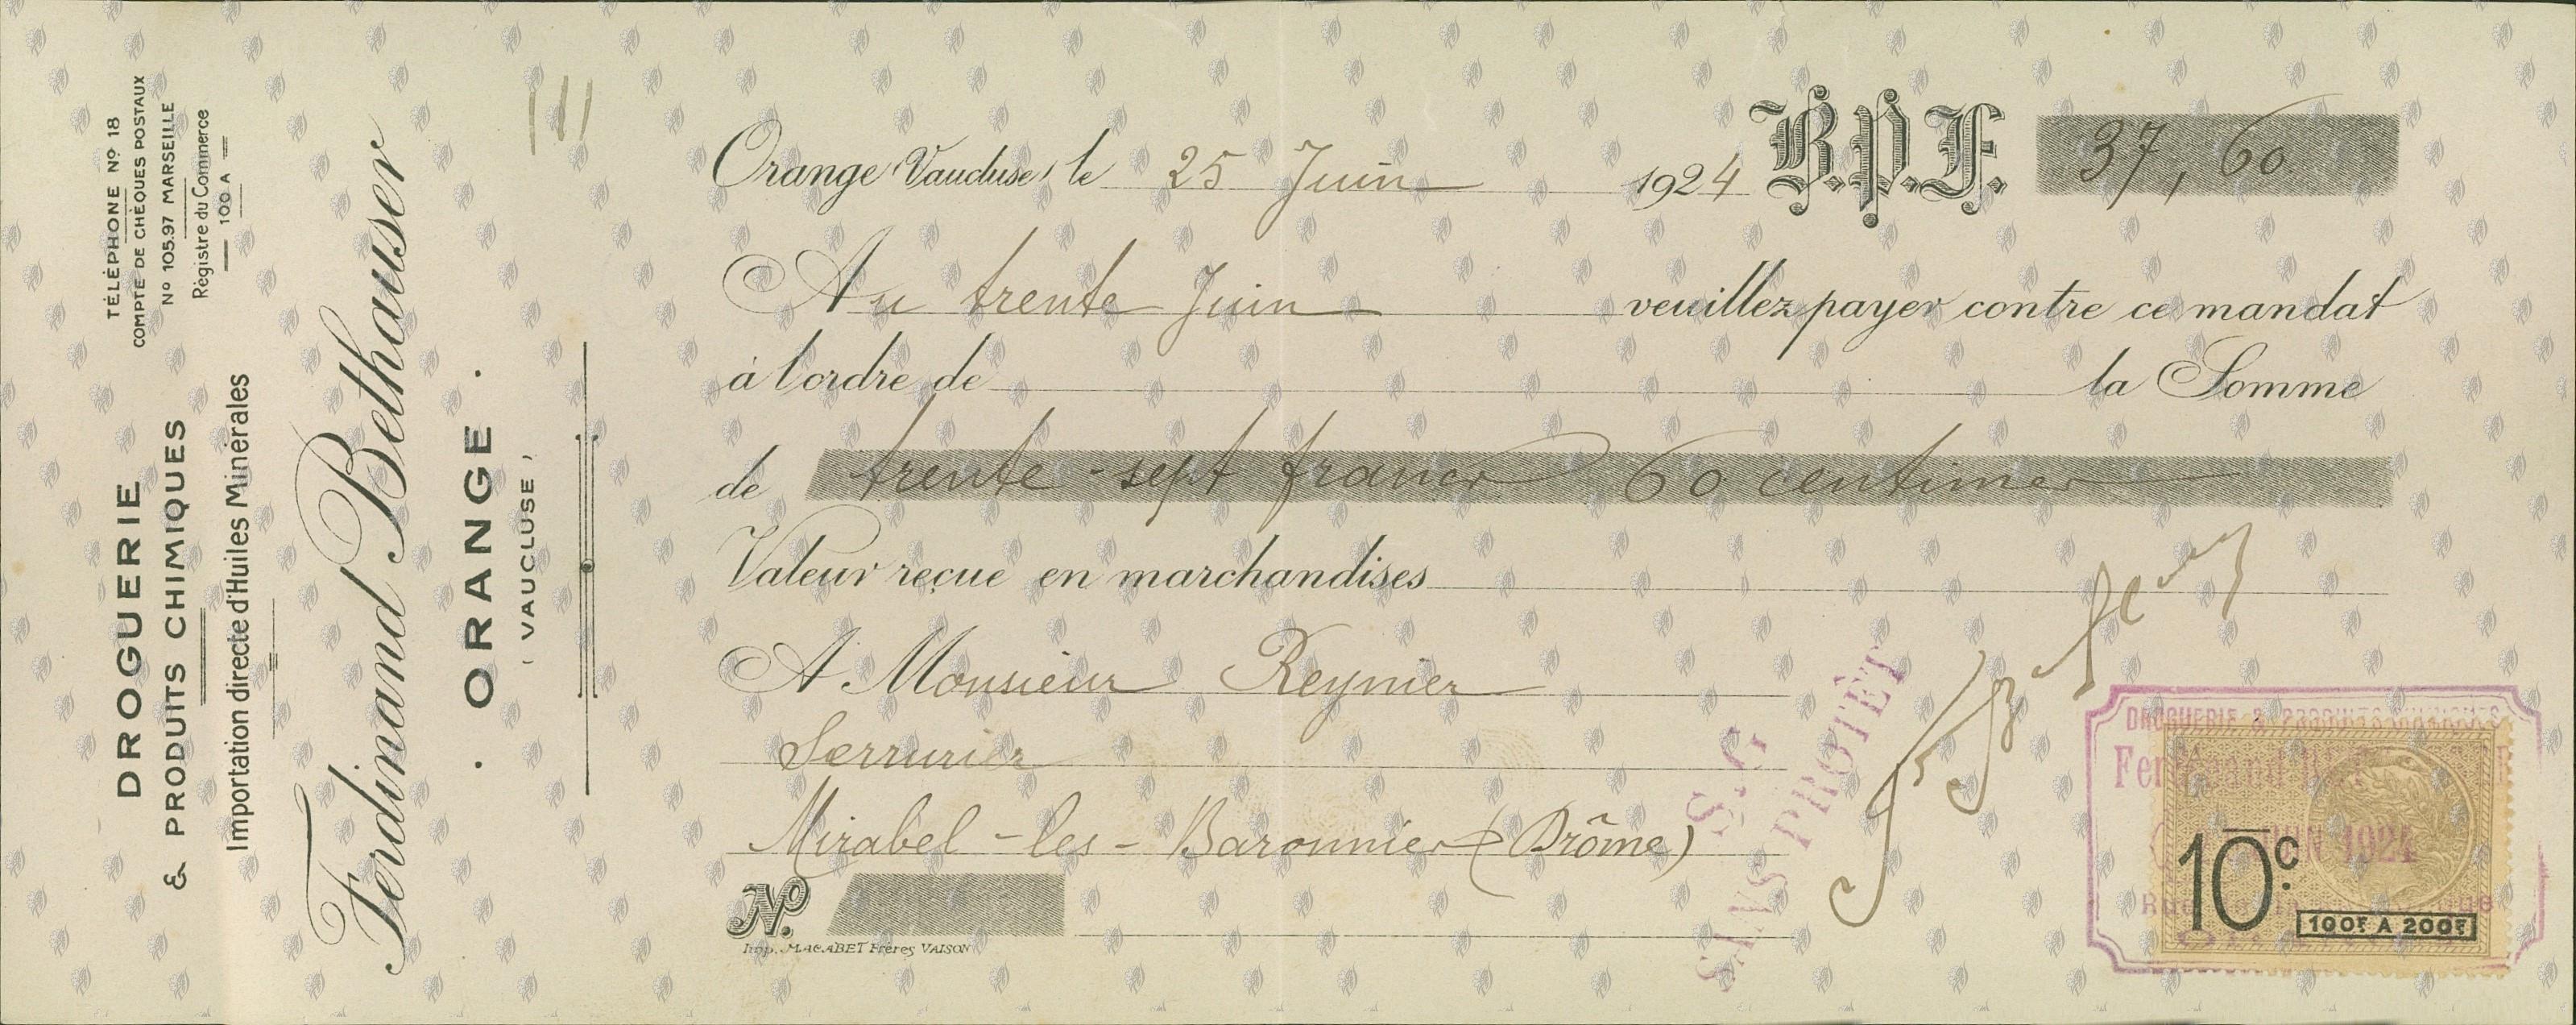 TÉLÉPHONE Nº 18
COMPTE DE CHÈQUES POSTAUX
Nº 105.97 MARSEILLE
Règistre du Commerce
100 A
DROGUERIE
& PRODUITS CHIMIQUES
Importation directe d'Huiles Minérales
Ferdinand Bethauser
. ORANGE .
( VAUCLUSE )
Orange (Vaucluse) le 25 Juin 1924 B.P.F. 37,60
Au trente Juin veuillez payer contre ce mandat
à l'ordre de la Somme
de trente-sept francs 60 centimes
Valeur reçue en marchandises
A Monsieur Reynier
Serrurier
Mirabel-les-Baronnies (Drôme)
Nº
Imp. MACABET Frères VAISON
S.F.
SANS PROTÊT
DROGUERIE & PRODUITS CHIMIQUES
Ferdinand
JUIN 1924
10c.
100F A 200F